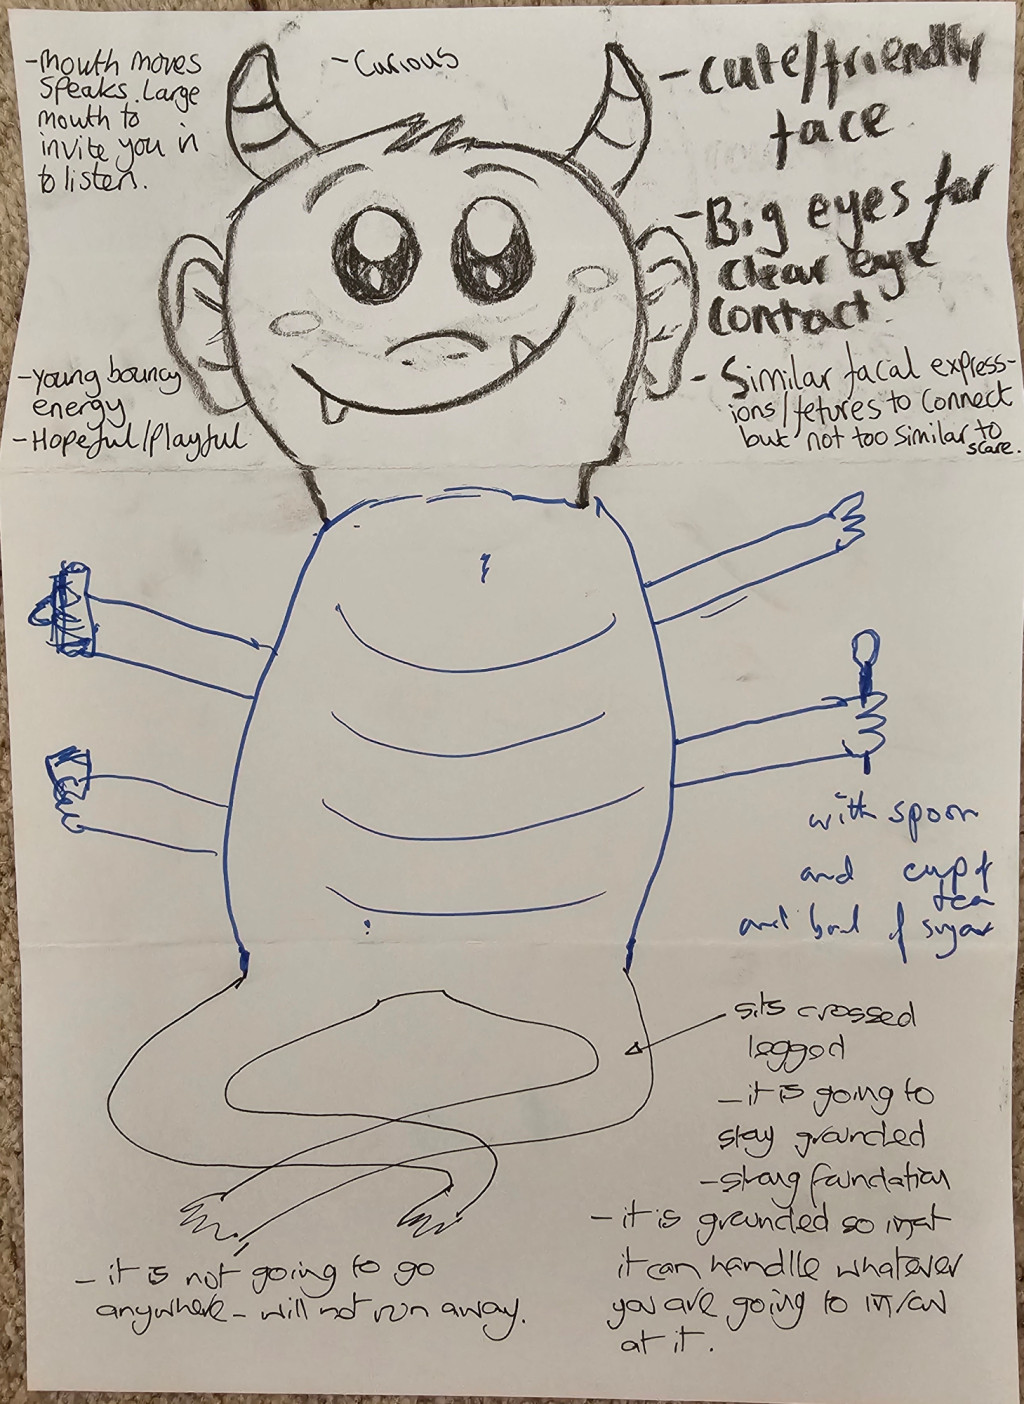 -Mouth moves
speaks. Large
mouth to
invite you in
to listen.
-Curious
-cute/friendly
face
-Big eyes for
clear eye
contact
-Young bouncy
energy
-Hopeful/playful
-Similar facal express-
ions/fetures to connect
but not too similar to
scare.
with spoon
and cup of
tea
and bowl of sugar
sits crossed
legged
-it is going to
stay grounded
-strong foundation
-it is grounded so that
it can handlle whatever
you are going to throw
at it.
-it is not going to go
anywhere-will not run away.